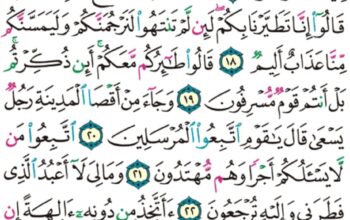 قَالُوٓاْ إِنَّا تَطَيَّرْنَا بِكُمْ لَئِن لَّمْ تَنتَهُواْ لَنَرْجُمَنَّكُمْ وَلَيَمَسَّنَّكُم
مِّنَّا عَذَابٌ أَلِيمٌ ١٨ قَالُواْ طَـٰٓئِرُكُم مَّعَكُمْ أَئِن ذُكِّرْتُم
بَلْ أَنتُمْ قَوْمٌ مُّسْرِفُونَ ١٩ وَجَآءَ مِنْ أَقْصَا ٱلْمَدِينَةِ رَجُلٌ
يَسْعَىٰ قَالَ يَـٰقَوْمِ ٱتَّبِعُواْ ٱلْمُرْسَلِينَ ٢٠ ٱتَّبِعُواْ مَن
لَّا يَسْـَٔلُكُمْ أَجْرًا وَهُم مُّهْتَدُونَ ٢١ وَمَالِىَ لَآ أَعْبُدُ ٱلَّذِى
فَطَرَنِى وَإِلَيْهِ تُرْجَعُونَ ٢٢ ءَأَتَّخِذُ مِن دُونِهِۦٓ ءَالِهَةً إِن